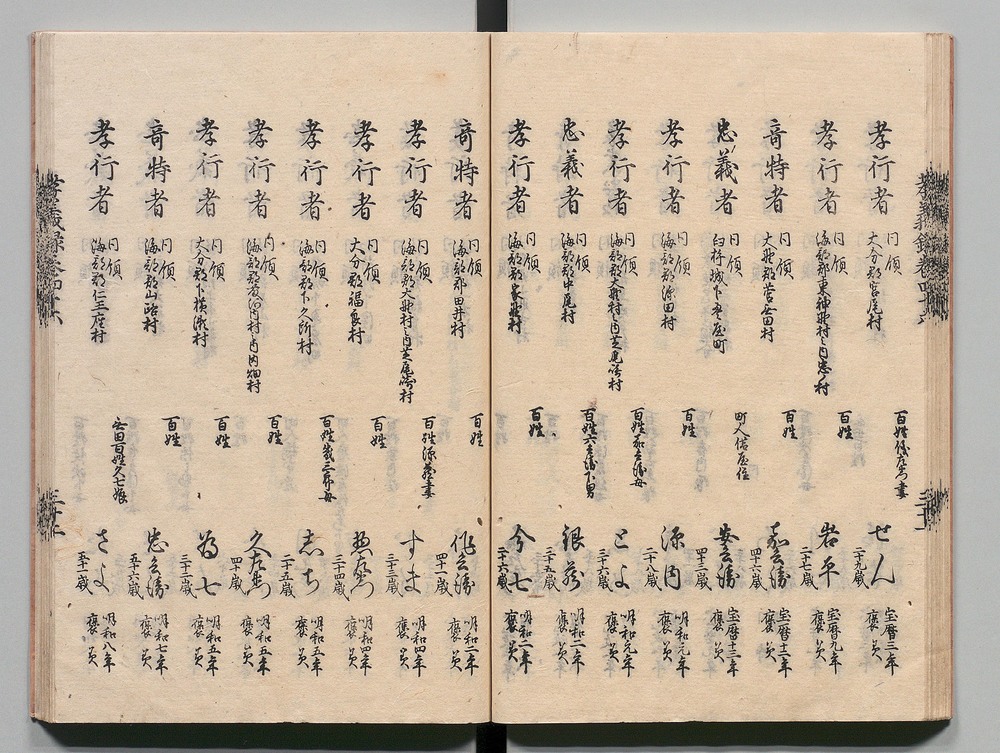 孝行者
同領
大分郡宮尾村
百姓儀左衛門妻
せん
二十九歳
宝暦三年
褒美
孝行者
同領
海部郡東神野村之内
百姓
岩平
二十七歳
宝暦九年
褒美
奇特者
同領
大野郡菅無田村
百姓
嘉兵衛
四十六歳
宝暦十二年
褒美
忠義者
同領
臼杵城下唐人屋町
町人借屋住
安兵衛
四十三歳
宝暦十三年
褒美
孝行者
同領
海部郡源田村
百姓
源内
二十八歳
明和元年
褒美
孝行者
同領
海部郡大野村之内芝尾崎村
百姓 母
とよ
三十六歳
明和元年
褒美
忠義者
同領
海部郡中尾村
百姓六兵衛下男
銀蔵
二十五歳
明和二年
褒美
孝行者
同領
海部郡家野村
百姓
今七
二十六歳
明和二年
褒美
奇特者
同領
海部郡田井村
百姓
作兵衛
四十一歳
明和二年
褒美
孝行者
同領
海部郡大野村之内芝尾崎村
百姓源蔵妻
すま
三十三歳
明和四年
褒美
孝行者
同領
大分郡福良村
百姓
惣左衛門
三十四歳
明和四年
褒美
孝行者
同領
海部郡下久所村
百姓 母
志ち
二十五歳
明和五年
褒美
孝行者
同領
海部郡 河内村之内内畑村
百姓
久左衛門
四十歳
明和五年
褒美
孝行者
同領
大分郡下横瀬村
百姓
為七
三十二歳
明和五年
褒美
奇特者
同領
海部郡山路村
百姓
忠兵衛
五十六歳
明和七年
褒美
孝行者
同領
海部郡仁王座村
無田百姓久七娘
さよ
五十一歳
明和八年
褒美